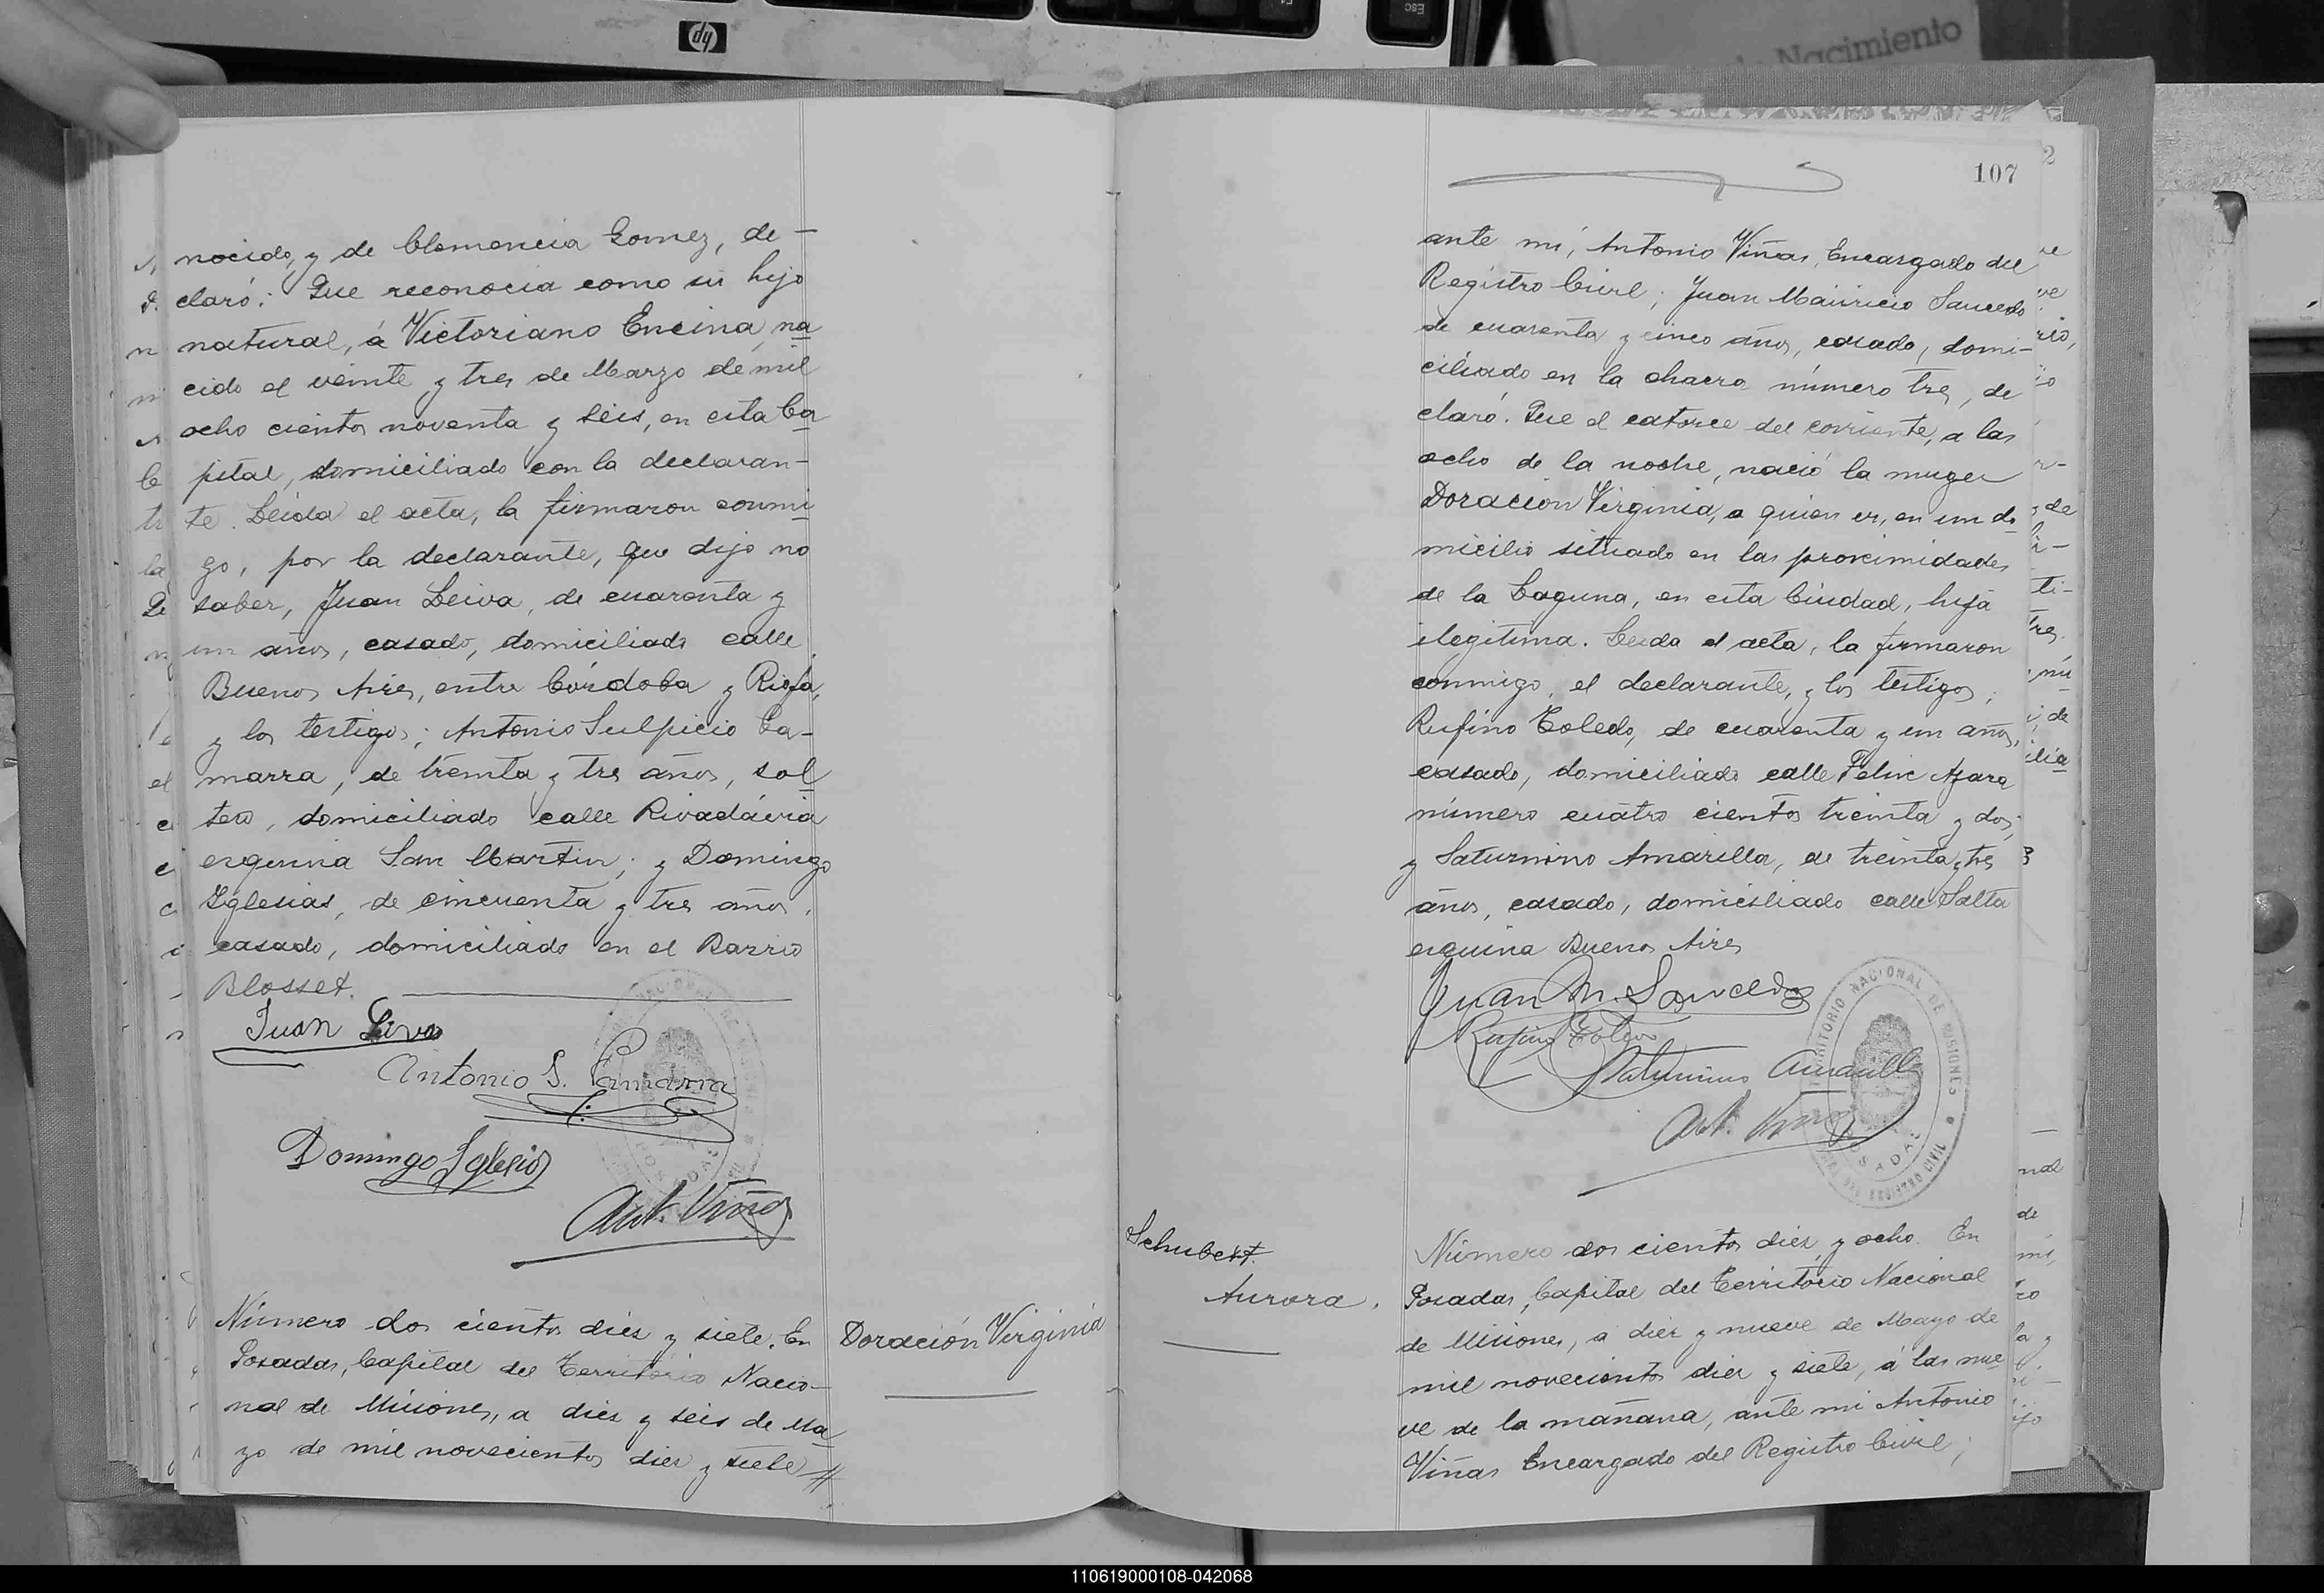 hp
Esc
Nacimiento
nocido, y de Clemencia Gomez, de-
claró: Que reconocia como su hijo
natural, á Victoriano Encina, na
cido el veinte y tres de Marzo de mil
ocho cientos noventa y seis, en esta Ca
pital, domiciliado con la declaran-
te. Leida el acta, la firmaron conmi
go, por la declarante, que dijo no
saber, Juan Leiva, de cuarenta y
un años, casado, domiciliado calle
Buenos Aires, entre Córdoba y Rioja,
y los testigos; Antonio Sulpicio Ga-
marra, de treinta y tres años, sol
tero, domiciliado calle Rivadávia
esquina San Martin; y Domingo
Iglesias, de cincuenta y tres años,
casado, domiciliado en el Barrio
Blosset.
Juan Leiva
Antonio S. Gamarra
Domingo Iglesias
Ant. Viñas
Número dos cientos diez y siete. En
Posadas, Capital del Territorio Nacio-
nal de Misiones, a diez y seis de Ma
yo de mil novecientos diez y siete //
Doración Virginia
107
ante mí, Antonio Viñas, Encargado del
Registro Civil; Juan Mauricio Saucedo
de cuarenta y cinco años, casado, domi-
ciliado en la chacra número tres, de
claró. Que el catorce del corriente, a las
ocho de la noche, nació la muger
Doración Virginia, a quien es, en un do
micilio situado en las proximidades
de la Laguna, en esta Ciudad, hija
ilegitima. Leida el acta, la firmaron
conmigo, el declarante, y los testigos;
Rufino Toledo, de cuarenta y un años,
casado, domiciliado calle Felix Azara
número cuatro cientos treinta y dos;
y Saturnino Amarilla, de treinta y tres
años, casado, domiciliado calle Salta
esquina Buenos Aires
Juan M. Saucedo
Rufino Toledo
Saturnino Amarilla
Ant. Viñas
TERRITORIO NACIONAL DE MISIONES
REGISTRO CIVIL
POSADAS
Schubert.
Aurora.
Número dos cientos diez y ocho. En
Posadas, Capital del Territorio Nacional
de Misiones, a diez y nueve de Mayo de
mil novecientos diez y siete, á las nue
ve de la mañana, ante mi Antonio
Viñas Encargado del Registro Civil;
110619000108-042068